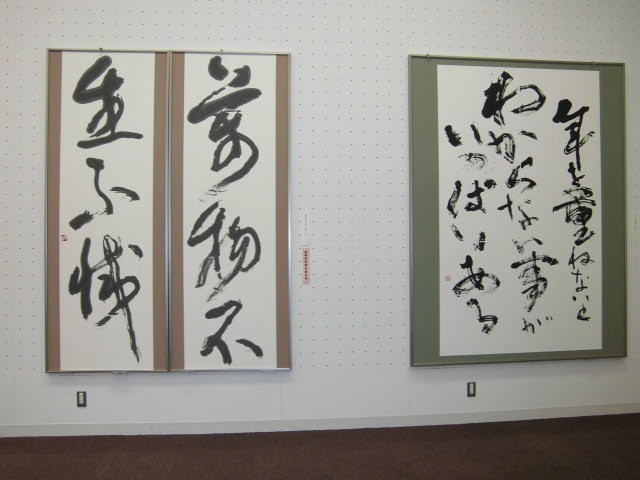 萬物不
生不滅
年を重ねないと
わからない事が
いっぱいある